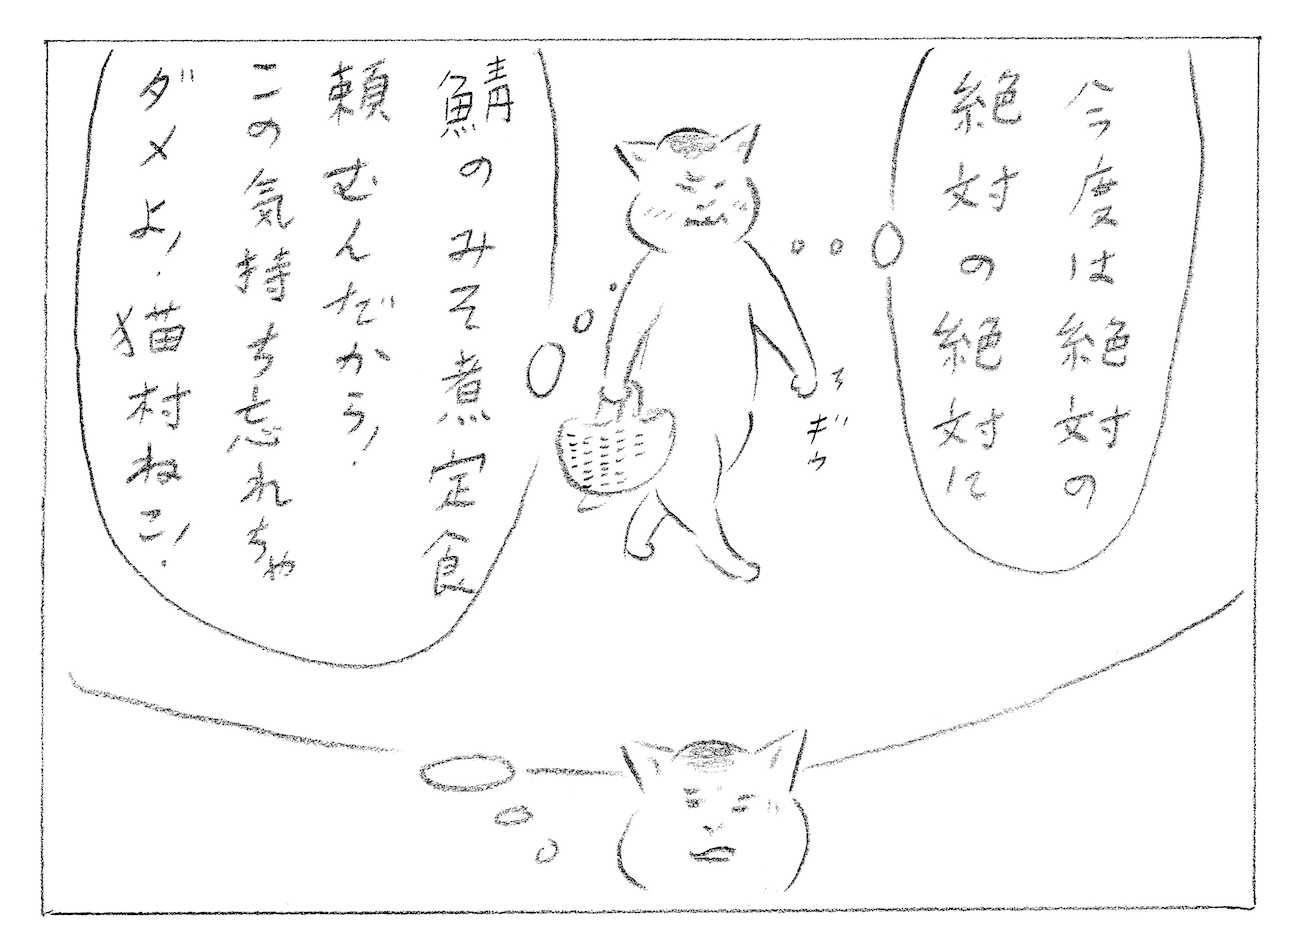 今度は絶対の
絶対の絶対に
鯖のみそ煮定食
頼むんだから!
この気持ち忘れちゃ
ダメよ!猫村ねこ!
ギゥ